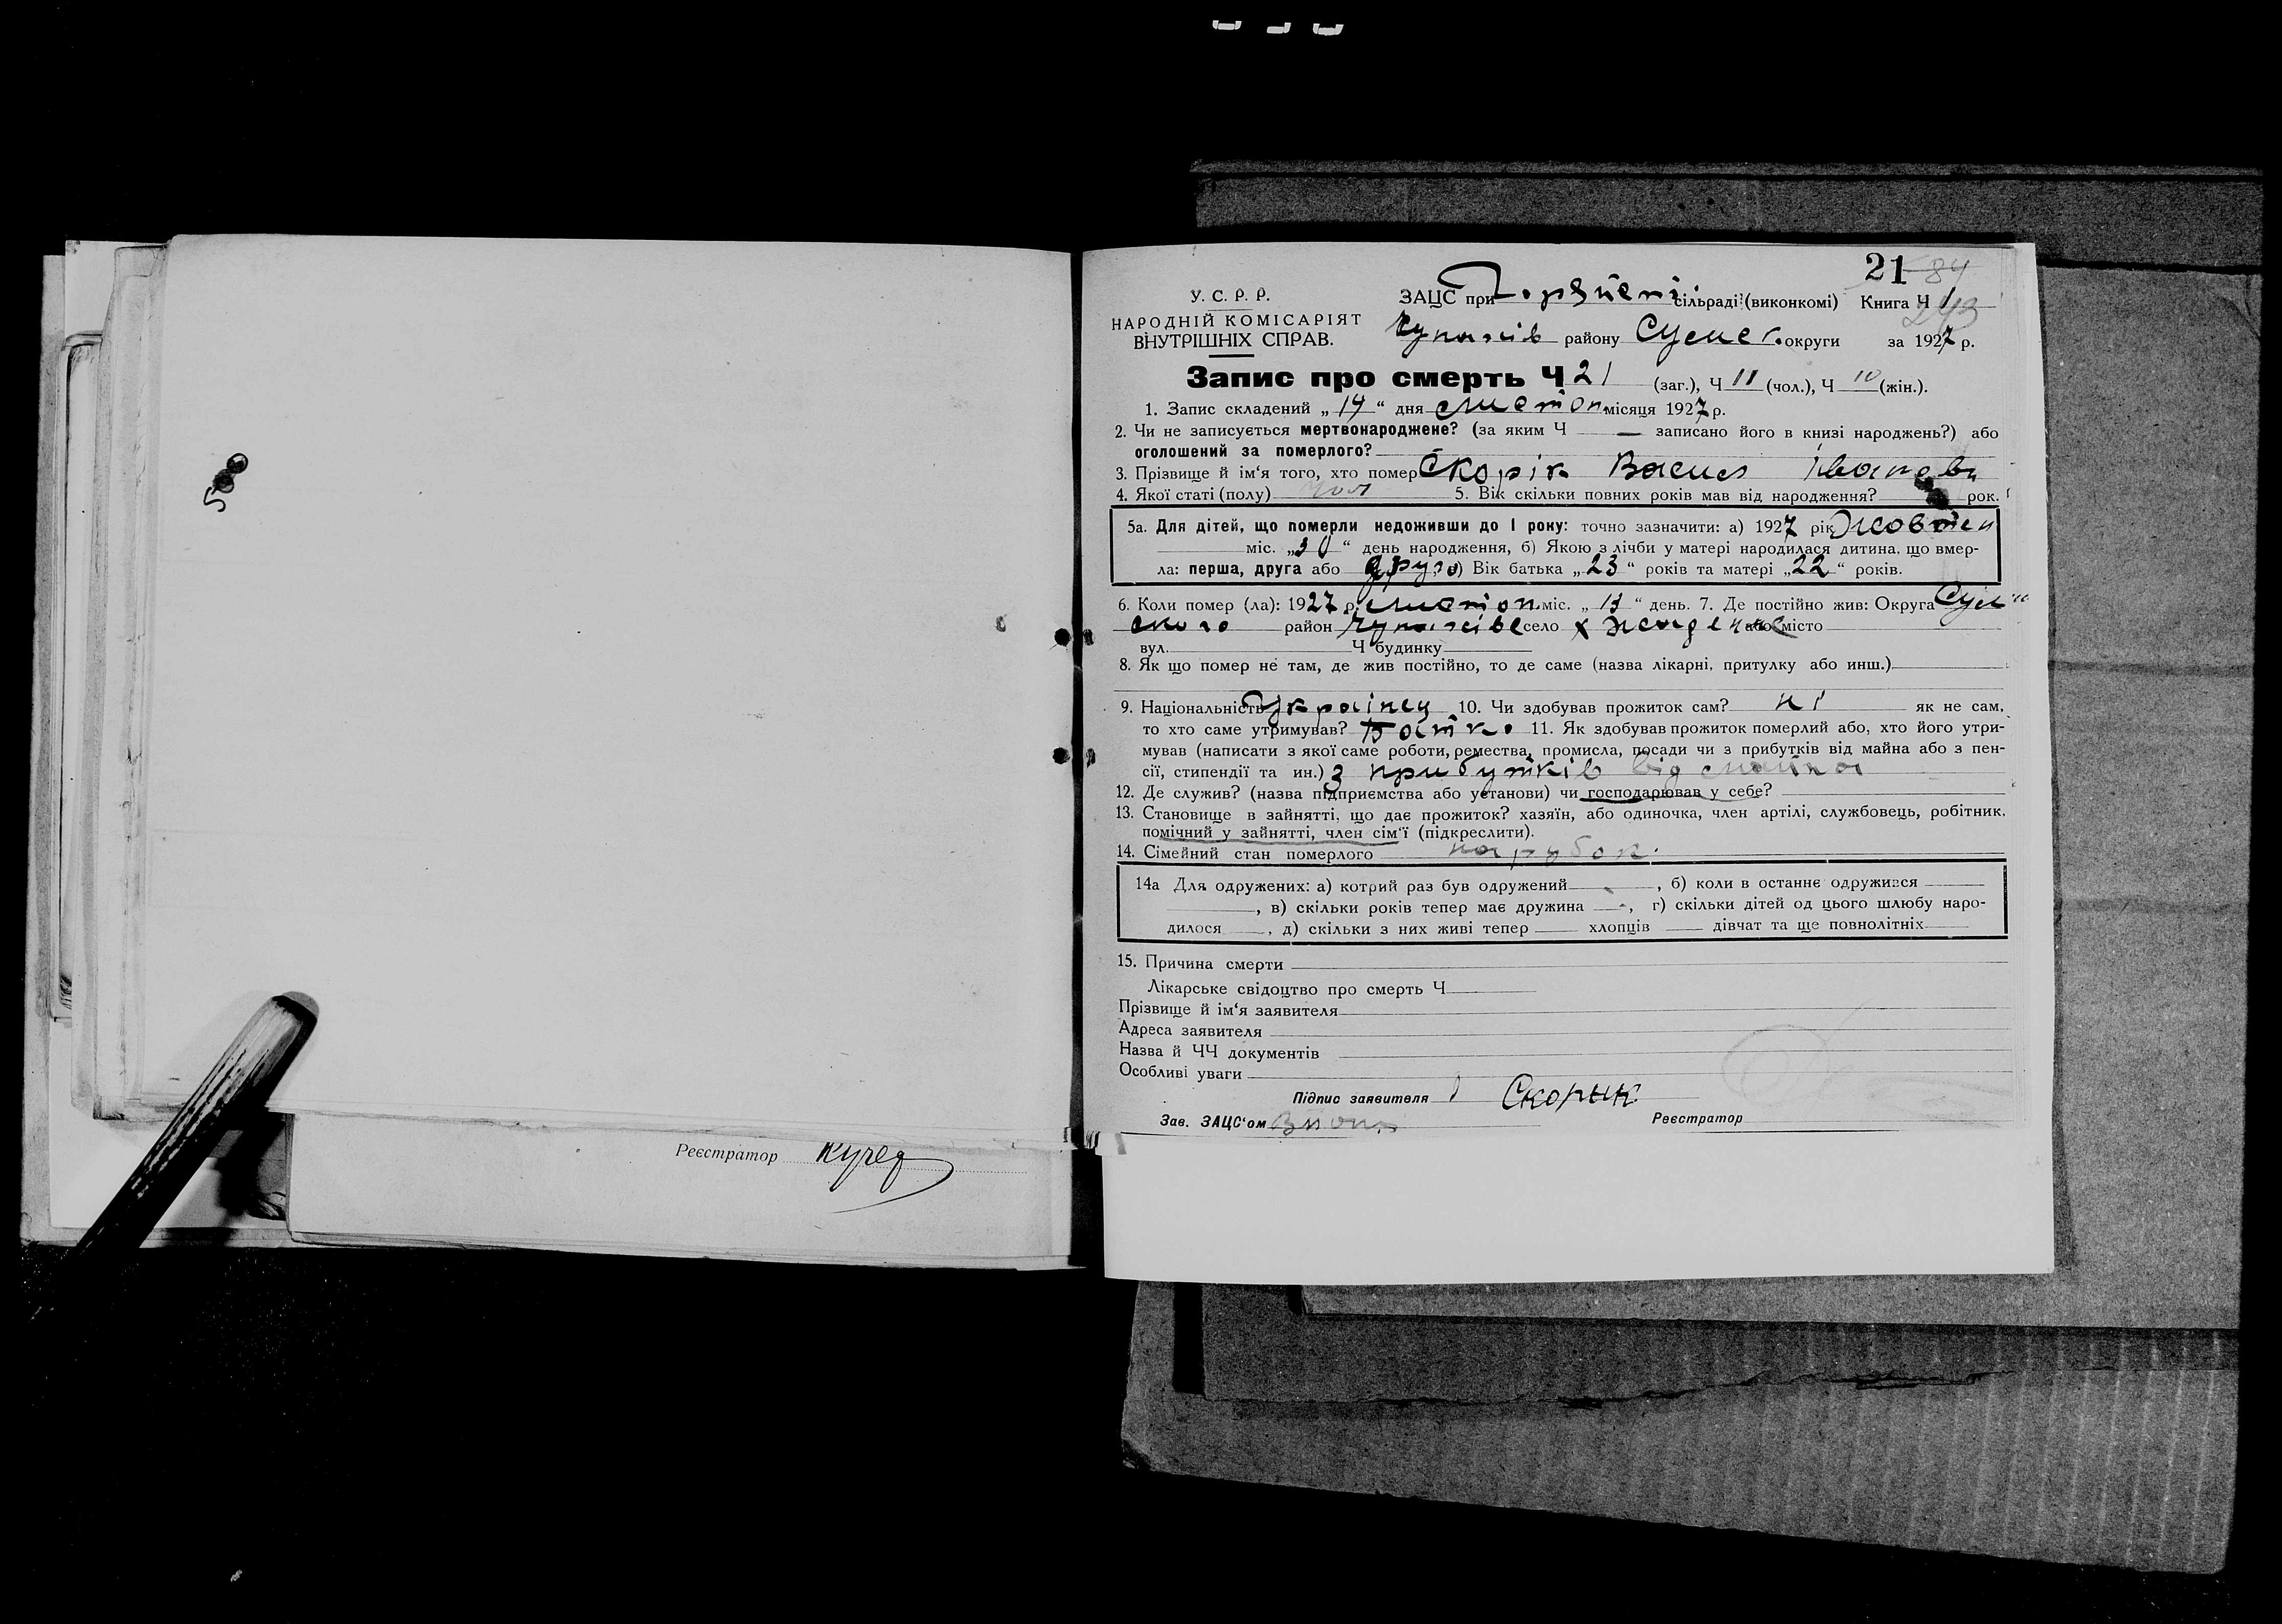 21 84
У. С. Р. Р.
НАРОДНІЙ КОМІСАРІЯТ
ВНУТРІШНІХ СПРАВ.
ЗАЦС при сільраді (виконкомі) Книга Ч 1
243
району Сумск. округи за 1927 р.
Запис про смерть Ч 21 (заг.), Ч 11 (чол.), Ч 10 (жін.).
1. Запис складений „14“ дня листоп місяця 1927 р.
2. Чи не записується мертвонароджене? (за яким Ч — записано його в книзі народжень?) або
оголошений за померлого?
3. Прізвище й ім‘я того, хто помер Скорік Васил Іванови
4. Якої статі (полу) чол 5. Вік скільки повних років мав від народження? рок.
5а. Для дітей, що померли недоживши до 1 року: точно зазначити: а) 1927 рік Жовтен
міс. „30“ день народження, б) Якою з лічби у матері народилася дитина, що вмер-
ла: перша, друга або друго в) Вік батька „23“ років та матері „22“ років.
6. Коли помер (ла): 1927 р. листоп міс. „13“ день. 7. Де постійно жив: Округа Сум
ского район село х або місто
вул. Ч будинку
8. Як що помер не там, де жив постійно, то де саме (назва лікарні, притулку або инш.)
9. Національність Українец 10. Чи здобував прожиток сам? ні як не сам,
то хто саме утримував? Батко 11. Як здобував прожиток померлий або, хто його утри-
мував (написати з якої саме роботи, ремества, промисла, посади чи з прибутків від майна або з пен-
сії, стипендії та ин.) з прибутків від майна
12. Де служив? (назва підприємства або установи) чи господарював у себе?
13. Становище в зайнятті, що дає прожиток? хазяїн, або одиночка, член артілі, службовець, робітник,
помічний у зайнятті, член сім‘ї (підкреслити).
14. Сімейний стан померлого парубок.
14а Для одружених: а) котрий раз був одружений , б) коли в останнє одружився
, в) скільки років тепер має дружина , г) скільки дітей од цього шлюбу наро-
дилося , д) скільки з них живі тепер хлопців дівчат та ще повнолітніх
15. Причина смерти
Лікарське свідоцтво про смерть Ч
Прізвище й ім‘я заявителя
Адреса заявителя
Назва й ЧЧ документів
Особливі уваги
Підпис заявителя Скорык
Зав. ЗАЦС‘ом Реєстратор
Реєстратор